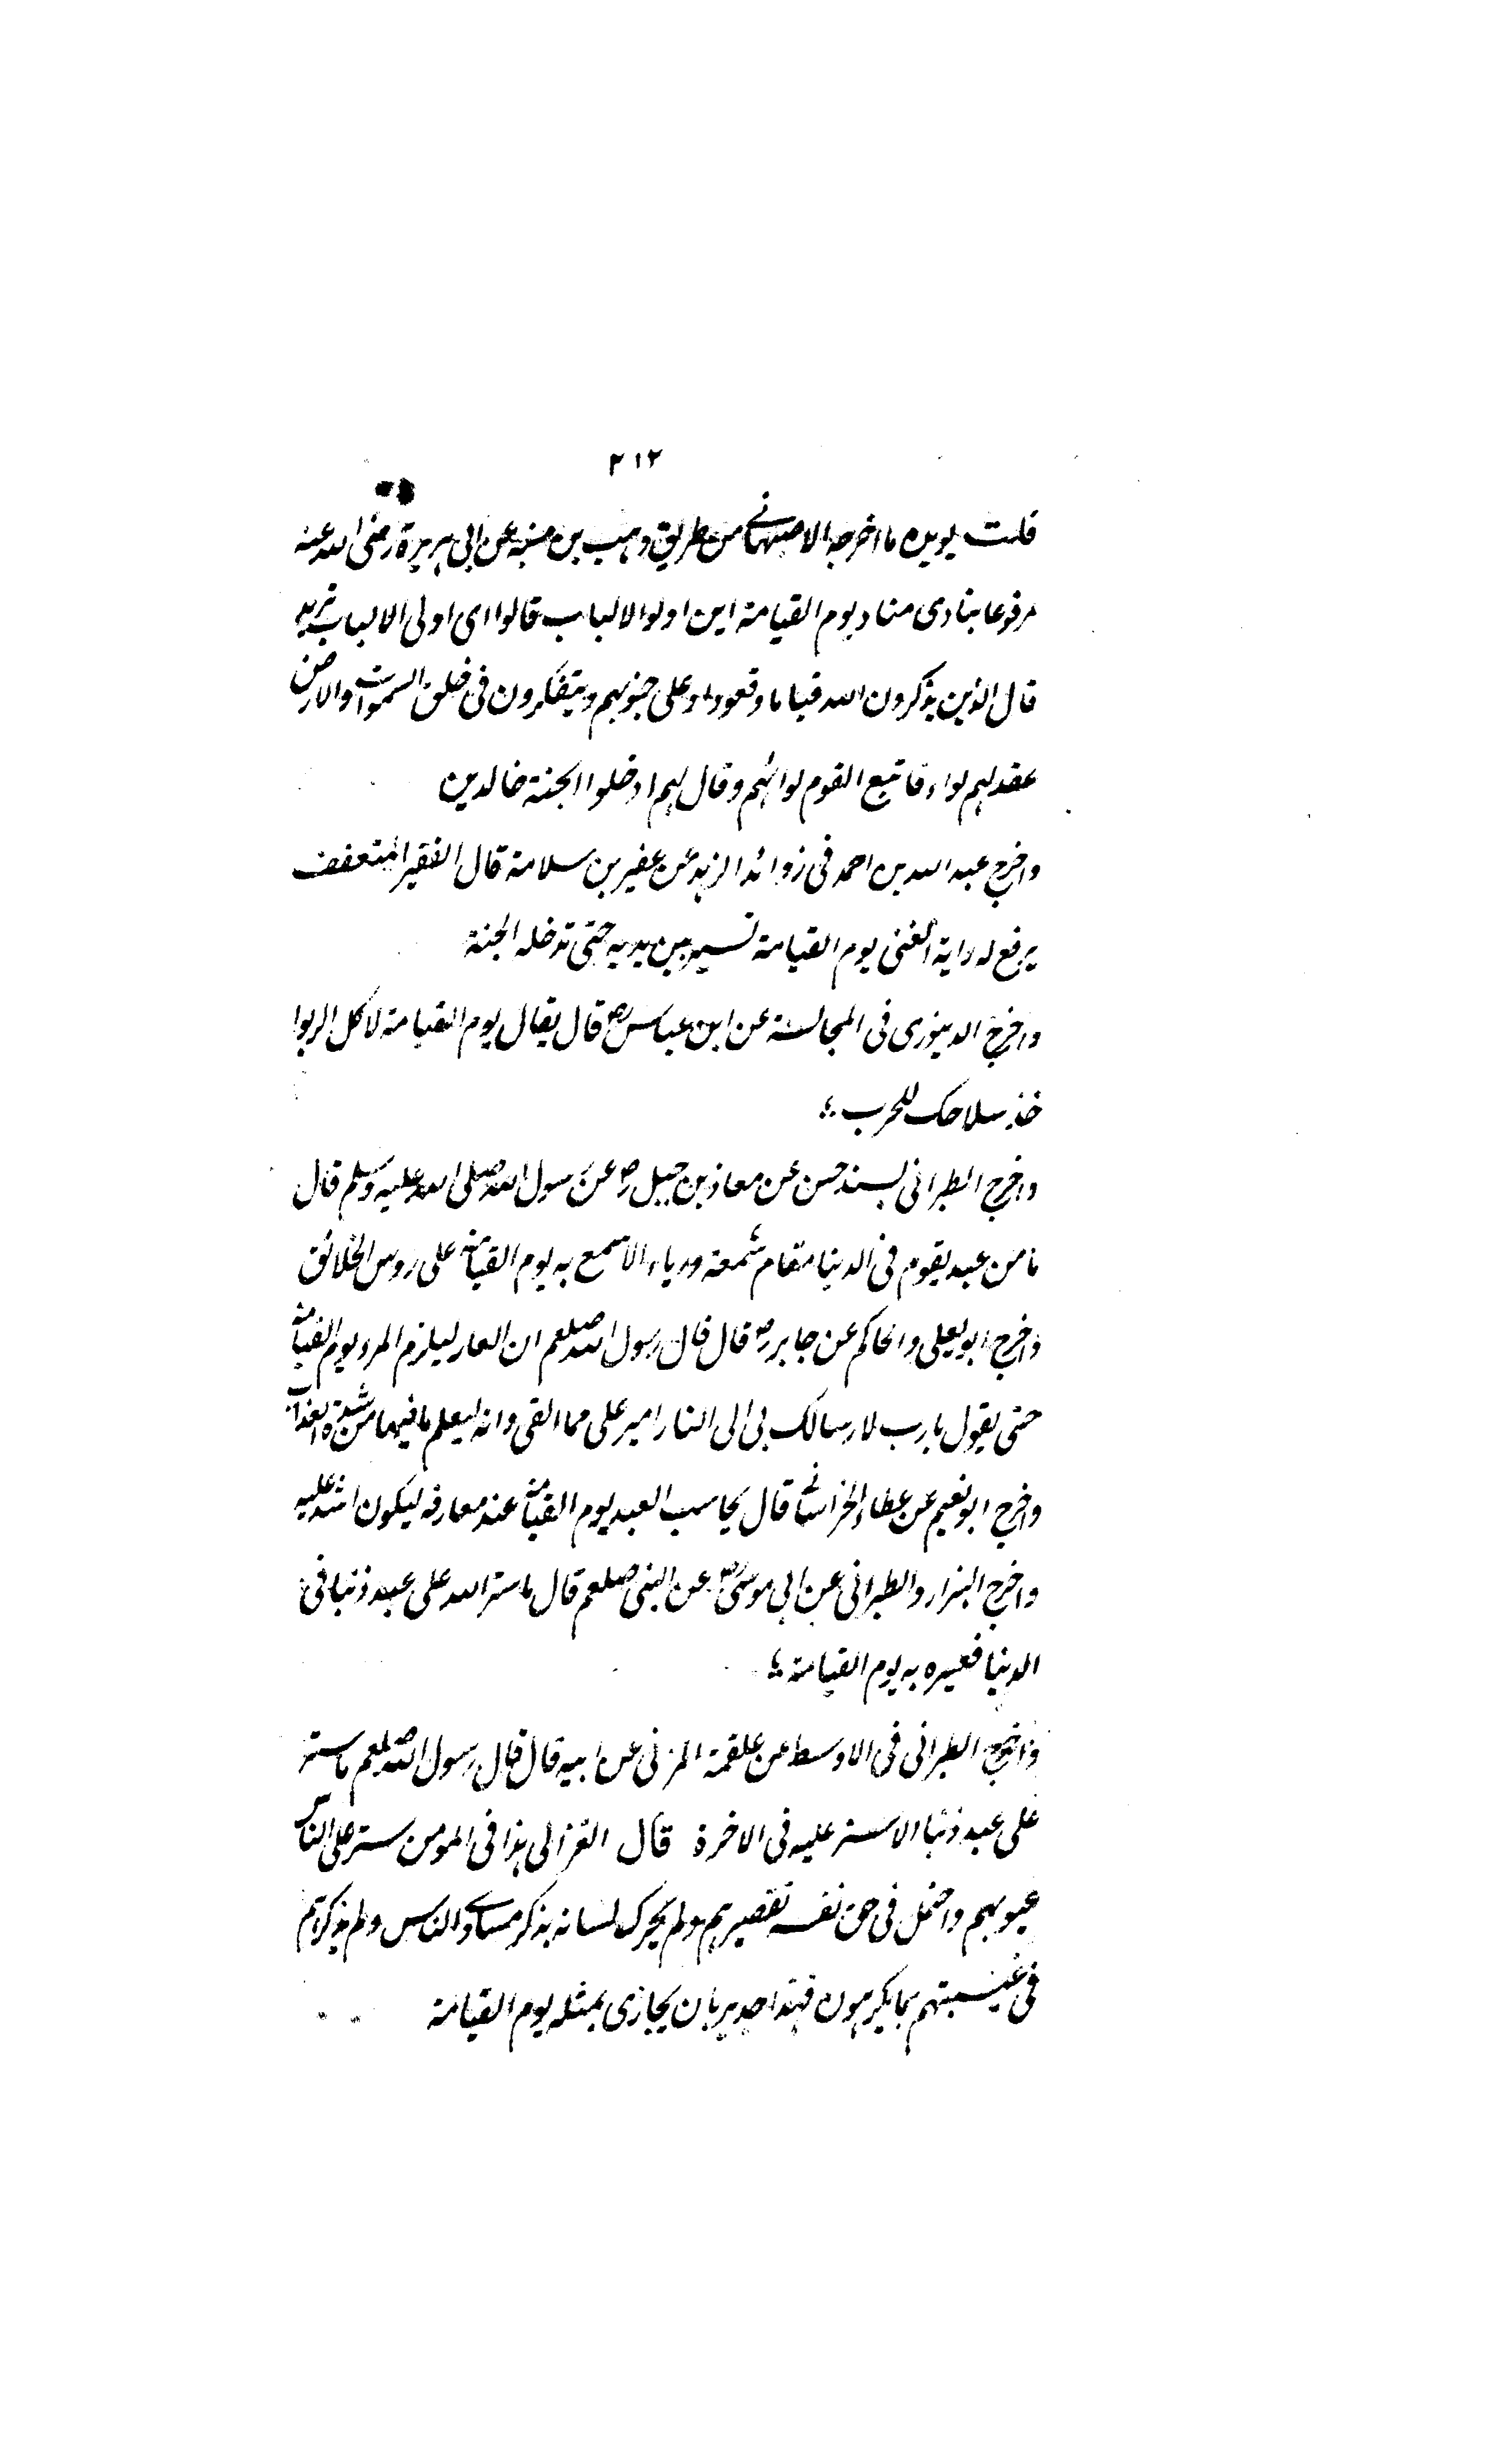 ٢١٢
قلت يويده ما اخرجه الاصبهانے من طريق وهب بن منبه عن ابى هريرة رضى الله عنه
مرفوعا ينادى مناد يوم القيامة اين اولو الالباب قالوا اى اولى الالباب تريد
قال الذين يذكرون الله قياما وقعودا وعلى جنوبهم ويتفكرون فى خلق السموات والارض
عقد لهم لواء فاتبع القوم لوائهم وقال لهم ادخلوا الجنة خالدين
واخرج عبد الله بن احمد فى زوائد الزهد عن عفير بن سلامة قال الفقير المتعفف
يرفع له راية الغنى يوم القيامة تسير بين يديه حتى تدخله الجنة
واخرج الدينورى فى المجالسة عن ابن عباس رض قال يقال يوم القيامة لاكل الربوا
خذ سلاحك للحرب ؛
واخرج الطبرانى بسند حسن عن معاذ بن جبل رض عن رسول الله صلى الله عليه وسلم قال
ما من عبد يقوم فى الدنيا مقام سمعة ورياء الا سمع به يوم القيامة على روس الخلائق
واخرج ابو يعلى والحاكم عن جابر رض قال قال رسول الله صلعم ان العار ليلزم المرء يوم القيامة
حتى يقول يا رب لارسالك بى الى النار ايسر على مما القى وانه ليعلم ما فيها من شدة العذاب
واخرج ابو نعيم عن عطاء الخراسانے قال يحاسب العبد يوم القيامة عند معارفه ليكون اشد عليه
واخرج البزار والطبرانى عن ابى موسى رض عن النبى صلعم قال ما ستر الله على عبد ذنبا فى
الدنيا فعيره به يوم القيامة ؛
واخرج الطبرانى فى الاوسط عن علقمة المزنى عن ابيه قال قال رسول الله صلعم ما ستر
على عبد ذنبا الا ستر عليه فى الاخرة قال الغزالى هذا فى المومن ستر على الناس
عيوبهم واحتمل فى حق نفسه تقصيرهم ولم يحرك لسانه بذكر مساوے الناس ولم يذكرهم
فى غيبتهم بما يكرهون فهذا جدير بان يجازى بمثله يوم القيامة